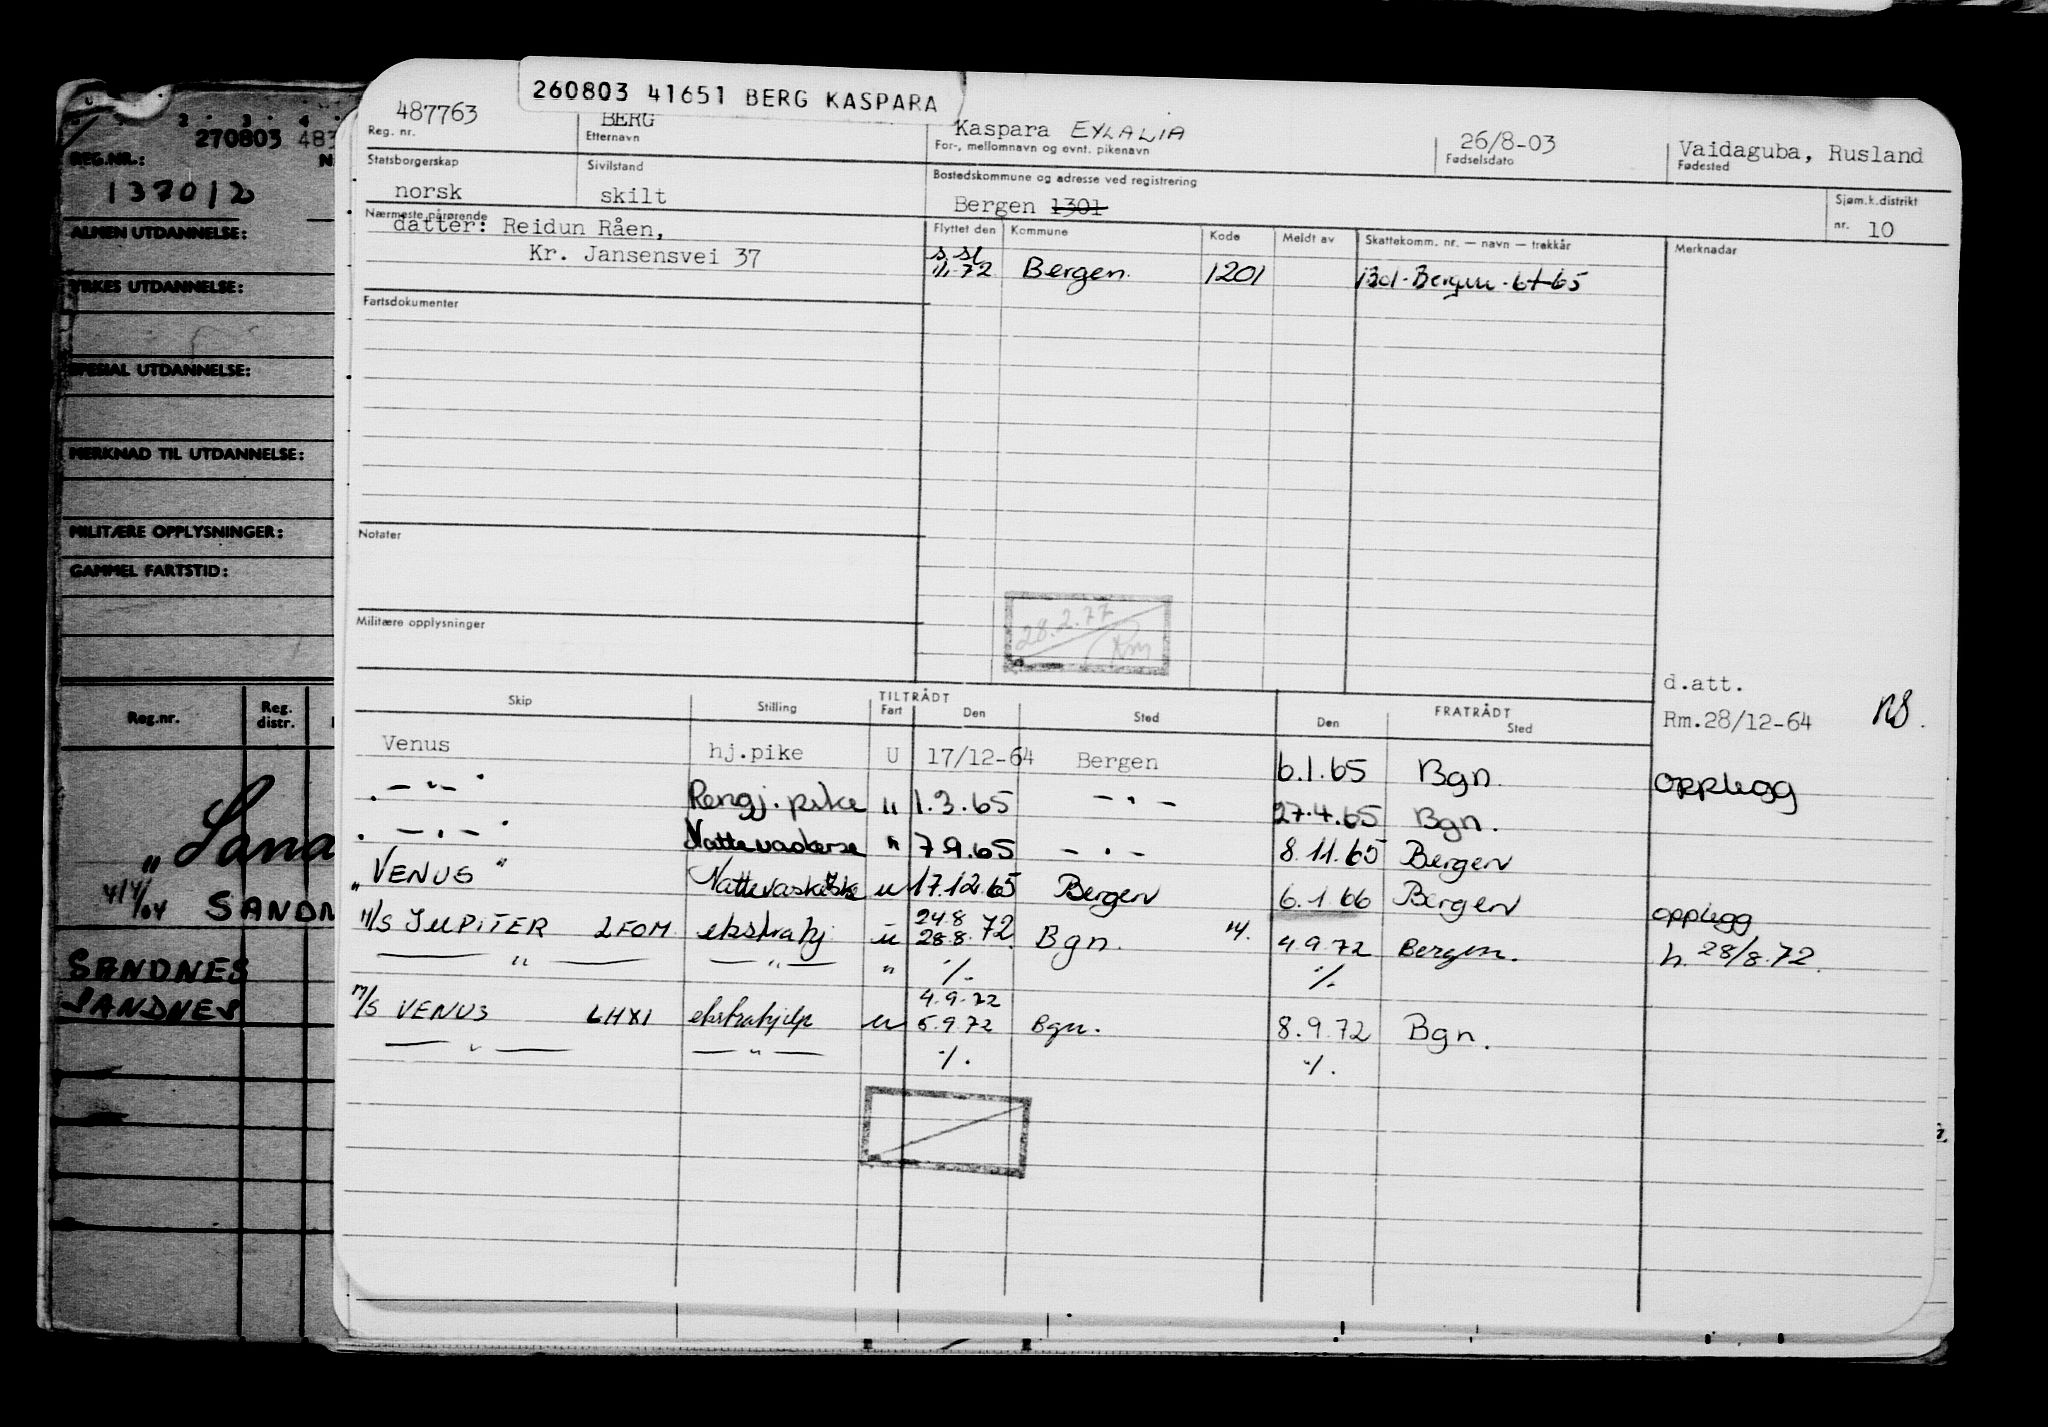 260803 41651 BERG KASPARA
487763 BERG Kaspara EYLALIA 26/8-03 Vaidaguba, Rusland
Reg. nr. Etternavn For-, mellomnavn og evnt. pikenavn Fødselsdato Fødested
Statsborgerskap Sivilstand Bostedskommune og adresse ved registrering Sjøm.k.distrikt
norsk skilt Bergen 1301 nr. 10
Nærmeste pårørende Flyttet den Kommune Kode Meldt av Skattekomm. nr. — navn — trekkår Merknadar
datter: Reidun Råen,
Kr. Jansensvei 37
1/1.72 Bergen. 1201 1301-Bergen-64-65
Fartsdokumenter
Notater
28.2.77
Militære opplysninger
d.att.
Rm.28/12-64
TILTRÅDT FRATRÅDT
Skip Stilling Fart Den Sted Den Sted
Venus hj.pike U 17/12-64 Bergen 6.1.65 Bgn. opplegg
— " — Rengj.pike " 1.3.65 — " — 27.4.65 Bgn.
— " — Nattevaskerse " 7.9.65 — " — 8.11.65 Bergen
"VENUS" u 17.12.65 Bergen 6.1.66 Bergen opplegg
M/S JUPITER LFOM ekstrahj u 24.8 28.8.72 Bgn. 4.9.72 Bergen. h. 28/8.72.
— " — — " — " ./. ./.
M/S VENUS LHXI ekstrahjelp u 4.9.72 5.9.72 Bgn. 8.9.72 Bgn.
— " — — " — ./. ./.
2 3 4
270803 483
REG.NR.: N
137012
ALMEN UTDANNELSE:
YRKES UTDANNELSE:
SPESIAL UTDANNELSE:
MERKNAD TIL UTDANNELSE:
MILITÆRE OPPLYSNINGER:
GAMMEL FARTSTID:
Reg.nr. Reg. distr.
"Sana
SANDN
SANDNES
SANDNES